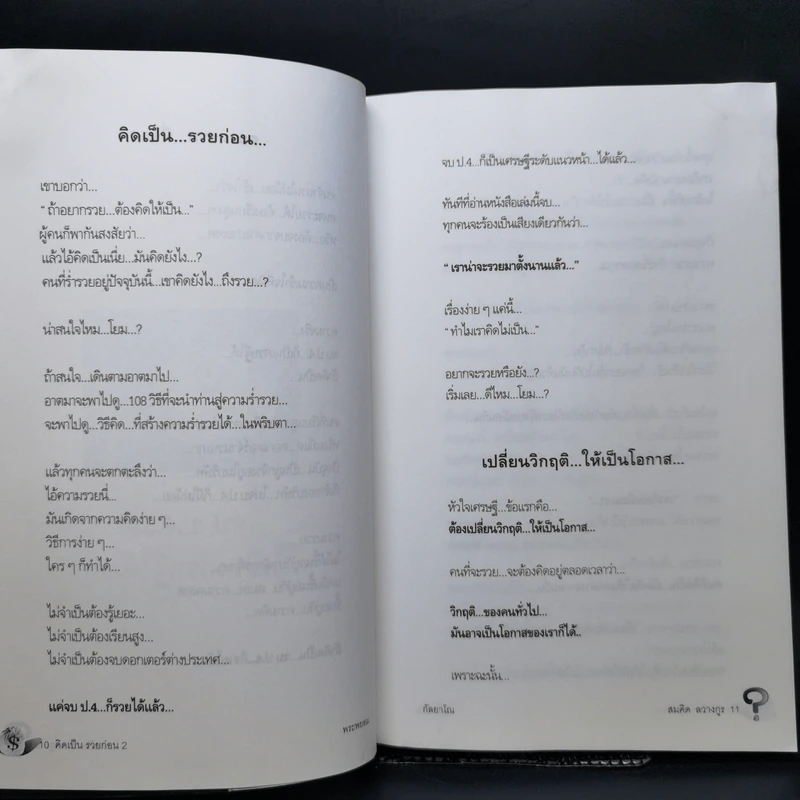 คิดเป็น...รวยก่อน...
เขาบอกว่า...
“ ถ้าอยากรวย...ต้องคิดให้เป็น...”
ผู้คนก็พากันสงสัยว่า...
แล้วไอ้คิดเป็นเนี่ย...มันคิดยังไง...?
คนที่ร่ำรวยอยู่ปัจจุบันนี้...เขาคิดยังไง...ถึงรวย...?
น่าสนใจไหม...โยม...?
ถ้าสนใจ...เดินตามอาตมาไป...
อาตมาจะพาไปดู...108 วิธีที่จะนำท่านสู่ความร่ำรวย...
จะพาไปดู...วิธีคิด...ที่สร้างความร่ำรวยได้...ในพริบตา...
แล้วทุกคนจะตกตะลึงว่า...
ไอ้ความรวยนี่...
มันเกิดจากความคิดง่าย ๆ...
วิธีการง่าย ๆ...
ใคร ๆ ก็ทำได้...
ไม่จำเป็นต้องรู้เยอะ...
ไม่จำเป็นต้องเรียนสูง...
ไม่จำเป็นต้องจบดอกเตอร์ต่างประเทศ...
แค่จบ ป.4...ก็รวยได้แล้ว...
พระพยอม
10 คิดเป็น รวยก่อน 2
จบ ป.4...ก็เป็นเศรษฐีระดับแนวหน้า...ได้แล้ว...
ทันทีที่อ่านหนังสือเล่มนี้จบ...
ทุกคนจะร้องเป็นเสียงเดียวกันว่า...
“ เราน่าจะรวยมาตั้งนานแล้ว...”
เรื่องง่าย ๆ แค่นี้...
“ ทำไมเราคิดไม่เป็น...”
อยากจะรวยหรือยัง...?
เริ่มเลย...ดีไหม...โยม...?
เปลี่ยนวิกฤติ...ให้เป็นโอกาส...
หัวใจเศรษฐี...ข้อแรกคือ...
ต้องเปลี่ยนวิกฤติ...ให้เป็นโอกาส...
คนที่จะรวย...จะต้องคิดอยู่ตลอดเวลาว่า...
วิกฤติ...ของคนทั่วไป...
มันอาจเป็นโอกาสของเราก็ได้..
เพราะฉะนั้น...
กัลยาโณ
สมคิด ลวางกูร 11